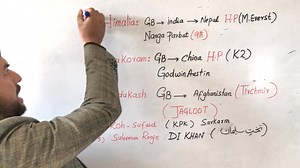 Himalia: GB → india → Nepal H.P (M.Everst)
Nanga Parbat (
akoram: GB → China H.P (K2)
GodwinAustin
dukash GB → Afghanistan (Trichmir)
(TAGLOOT)
Koh-Sufaid (KPK) Saram
) Suleman Range DI KHAN (تخت سلیمان)